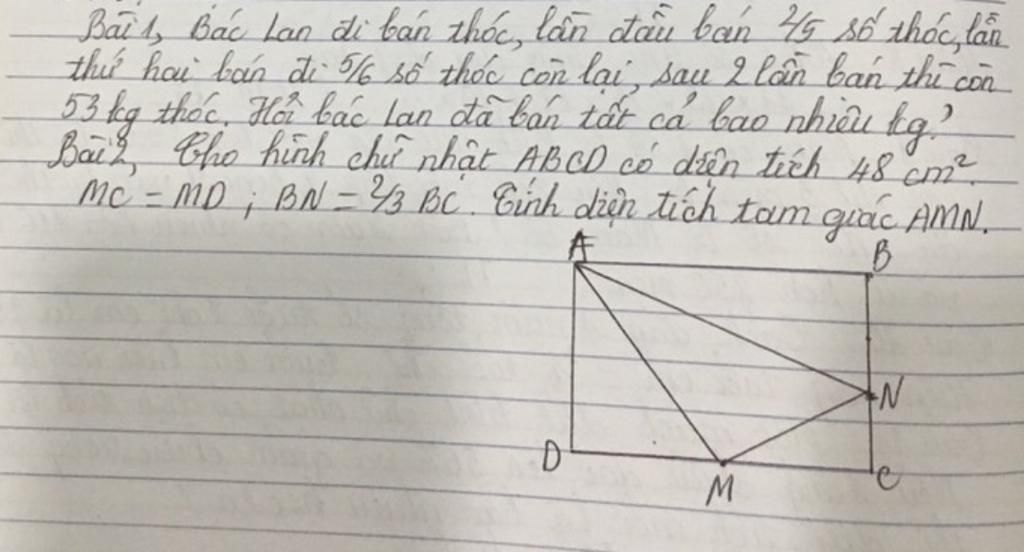 Bài 1, Bác Lan đi bán thóc, lần đầu bán 2/5 số thóc, lần
thứ hai bán đi 5/6 số thóc còn lại, sau 2 lần bán thì còn
53 kg thóc. Hỏi bác Lan đã bán tất cả bao nhiêu kg?
Bài 2, Cho hình chữ nhật ABCD có diện tích 48 cm².
MC = MD ; BN = 2/3 BC. Tính diện tích tam giác AMN.
A B
N
D M C